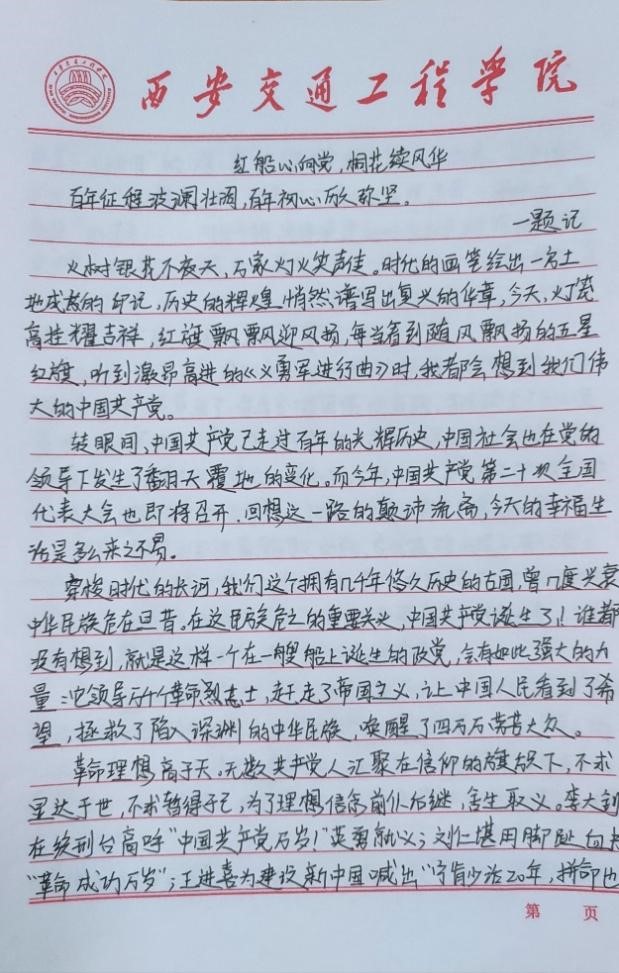 西安交通工程学院
红船心向党,桐花续风华
百年征程波澜壮阔,百年初心历久弥坚。
—题记
火树银花不夜天,万家灯火笑声佳。时代的画笔绘出一方土
地成教的印记,历史的辉煌悄然谱写出复兴的华章,今天,灯笼
高挂耀吉祥,红旗飘飘迎风扬,每当看到随风飘扬的五星
红旗,听到激昂高进的《义勇军进行曲》时,我都会想到我们伟
大的中国共产党。
转眼间,中国共产党已走过百年的光辉历史,中国社会也在党的
领导下发生了翻天覆地的变化。而今年,中国共产党第二十次全国
代表大会也即将召开,回想这一路的颠沛流离,今天的幸福生
活是多么来之不易。
穿梭时代的长河,我们这个拥有几千年悠久历史的古国,曾几度兴衰
中华民族危在旦昔。在这民族危亡的重要关头,中国共产党诞生了!谁都
没有想到,就是这样一个在一艘船上诞生的政党,会有如此强大的力
量:它领导万千革命烈志士,赶走了帝国主义,让中国人民看到了希
望,拯救了陷入深渊的中华民族,唤醒了四万万劳苦大众。
革命理想高于天。无数共产党人汇聚在信仰的旗帜下,不求
显达于世,不求暂得于己,为了理想信念前仆后继,舍生取义。李大钊
在绞刑台高呼"中国共产党万岁!"英勇就义;刘仁堪用脚趾血书
"革命成功万岁";王进喜为建设新中国喊出"宁肯少活20年,拼命也
第 页